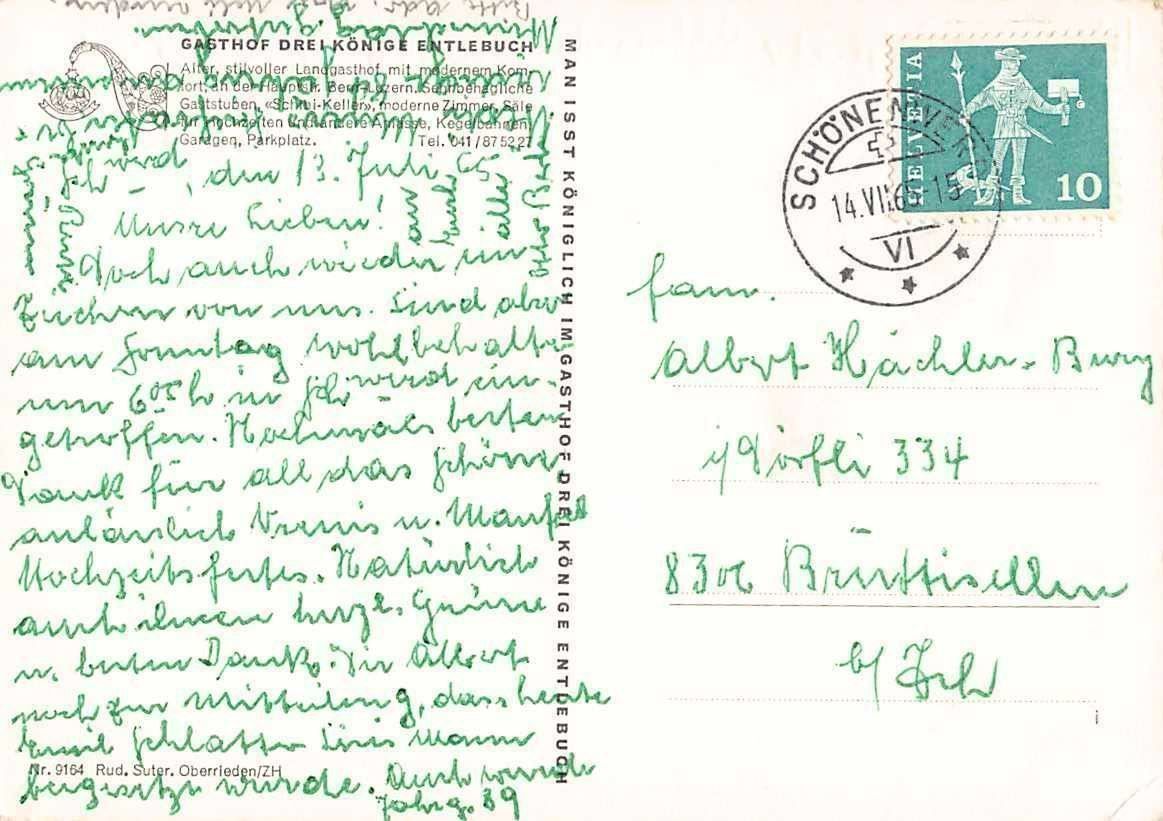 GASTHOF DREI KÖNIGE ENTLEBUCH
Alter, stilvoller Landgasthof mit modernem Kom-
fort, an der Hauptstr. Bern-Luzern. Sehr behagliche
Gaststuben, «Schibi-Keller», moderne Zimmer, Säle
für Hochzeiten und andere Anlässe, Kegelbahnen,
Garagen, Parkplatz. Tel. 041/875227
den 13. Juli 65
Unsre Lieben!
Doch auch wieder ein
Zeichen von uns. Sind aber
am Sonntag wohlbehalten
um 6 05 h in Schwerd ein-
getroffen. Nochmals besten
Dank für all das Schöne
anlässlich Vrenis u. Manfred
Hochzeitsfestes. Natürlich
auch ihnen herzl. Grüsse
u. besten Dank. Dir Albert
noch zur Mitteilung, dass heute
Emil Schlatter Mann
beigesetzt wurde. Auch
Jahrg. 39
Nr. 9164 Rud. Suter, Oberrieden/ZH
MAN ISST KÖNIGLICH IM GASTHOF DREI KÖNIGE ENTLEBUCH
HELVETIA
10
SCHÖNENWERD
14.VII.65-15
VI
Fam.
Albert Hächler-Burg
i/Dörfli 334
8306 Brüttisellen
b/Zch